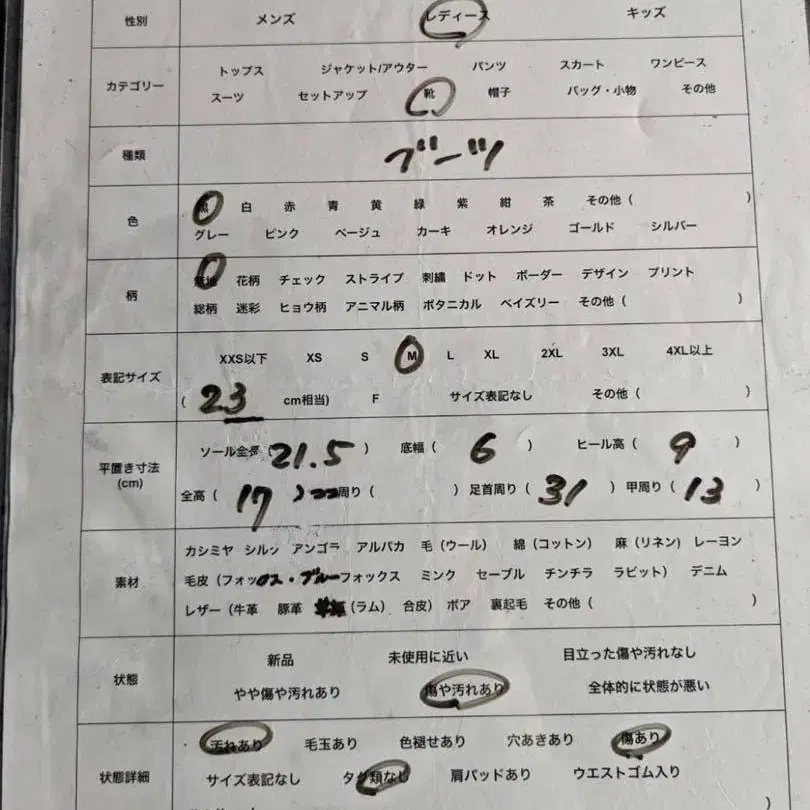 性別 メンズ レディース キッズ
カテゴリー トップス ジャケット/アウター パンツ スカート ワンピース
スーツ セットアップ 靴 帽子 バッグ・小物 その他
種類 ブーツ
色 白 赤 青 黄 緑 紫 紺 茶 その他 ( )
グレー ピンク ベージュ カーキ オレンジ ゴールド シルバー
柄 無地 花柄 チェック ストライプ 刺繍 ドット ボーダー デザイン プリント
総柄 迷彩 ヒョウ柄 アニマル柄 ボタニカル ペイズリー その他 ( )
表記サイズ XXS以下 XS S M L XL 2XL 3XL 4XL以上
( 23 cm相当) F サイズ表記なし その他 ( )
平置き寸法 (cm) ソール全長 ( 21.5 ) 底幅 ( 6 ) ヒール高 ( 9 )
全高 ( 17 ) 周り ( ) 足首周り ( 31 ) 甲周り ( 13 )
素材 カシミヤ シルク アンゴラ アルパカ 毛 (ウール) 綿 (コットン) 麻 (リネン) レーヨン
毛皮 (フォックス・ブルーフォックス ミンク セーブル チンチラ ラビット) デニム
レザー (牛革 豚革 (ラム) 合皮) ボア 裏起毛 その他 ( )
状態 新品 未使用に近い 目立った傷や汚れなし
やや傷や汚れあり 傷や汚れあり 全体的に状態が悪い
状態詳細 汚れあり 毛玉あり 色褪せあり 穴あきあり 傷あり
サイズ表記なし タグ類なし 肩パッドあり ウエストゴム入り